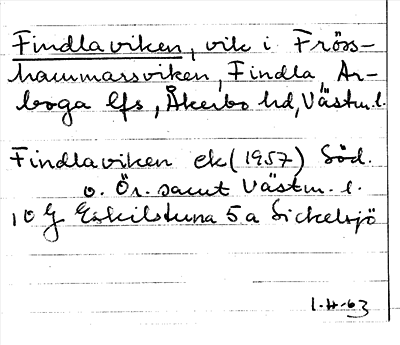 Findlaviken, vik i Frös-
hammarsviken, Findla, Ar-
boga lfs, Åkerbo hd, Västm. l.
Findlaviken ek (1957) Söd.
o. Ör. samt Västm. l.
10 G Eskilstuna 5 a Sickelsjö
1-H-63